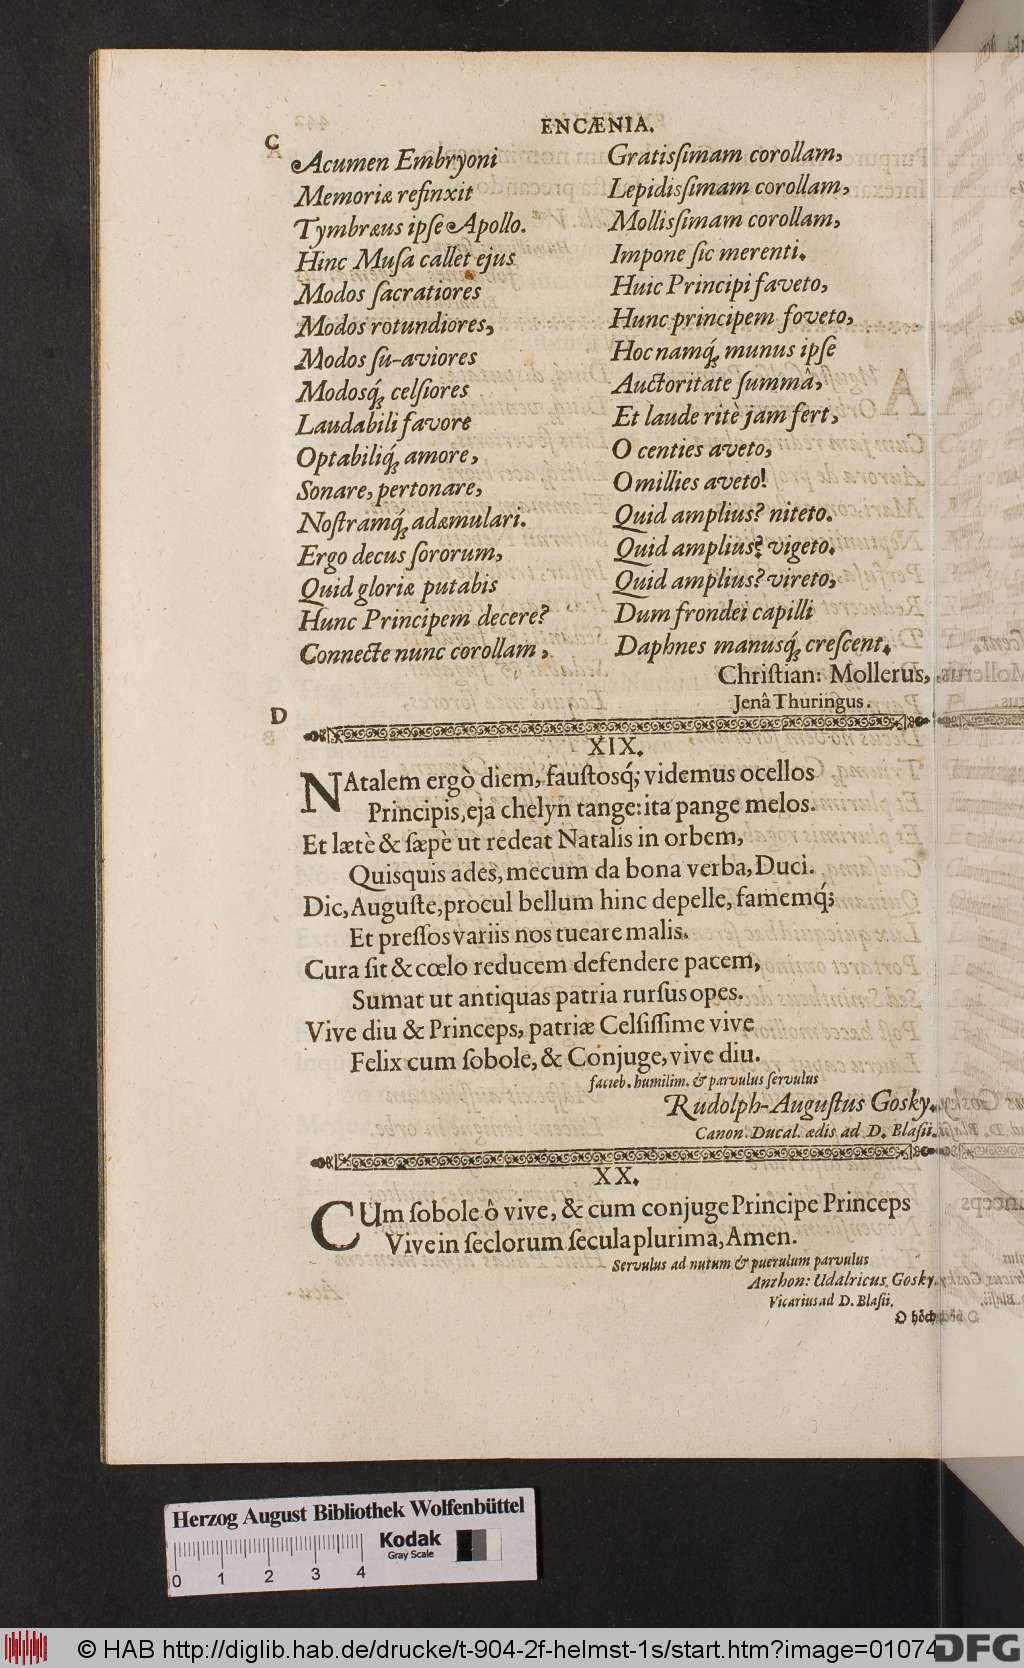 ENCÆNIA.
C
Acumen Embryoni
Memoriæ refinxit
Tymbræus ipſe Apollo.
Hinc Muſa callet ejus
Modos ſacratiores
Modos rotundiores,
Modos ſu-aviores
Modosq́; celſiores
Laudabili favore
Optabiliq́; amore,
Sonare, pertonare,
Noſtramq́; adæmulari.
Ergo decus ſororum,
Quid gloriæ putabis
Hunc Principem decere?
Connecte nunc corollam,
Gratisſimam corollam,
Lepidisſimam corollam,
Mollisſimam corollam,
Impone ſic merenti.
Huic Principi faveto,
Hunc principem foveto,
Hoc namq́; munus ipſe
Auctoritate ſummâ,
Et laude ritè jam fert,
O centies aveto,
O millies aveto!
Quid amplius? niteto.
Quid amplius? vigeto.
Quid amplius? vireto,
Dum frondei capilli
Daphnes manusq́; creſcent.
Chriſtian: Mollerus,
Jenâ Thuringus.
D
XIX.
NAtalem ergò diem, fauſtosq́; videmus ocellos
Principis, eja chelyn tange: ita pange melos.
Et lætè & ſæpè ut redeat Natalis in orbem,
Quisquis ades, mecum da bona verba, Duci.
Dic, Auguſte, procul bellum hinc depelle, famemq́;
Et preſſos variis nos tueare malis.
Cura ſit & cœlo reducem defendere pacem,
Sumat ut antiquas patria rurſus opes.
Vive diu & Princeps, patriæ Celſiſſime vive
Felix cum ſobole, & Conjuge, vive diu.
facieb. humilim. & parvulus ſervulus
Rudolph-Auguſtus Gosky.
Canon. Ducal. ædis ad D. Blaſii.
XX.
CUm ſobole ô vive, & cum conjuge Principe Princeps
Vive in ſeclorum ſecula plurima, Amen.
Servulus ad nutum & puerulum parvulus
Anthon: Udalricus Gosky.
Vicarius ad D. Blaſii.
O hoͤch
Herzog August Bibliothek Wolfenbüttel
Kodak
Gray Scale
0 1 2 3 4
© HAB http://diglib.hab.de/drucke/t-904-2f-helmst-1s/start.htm?image=01074
DFG